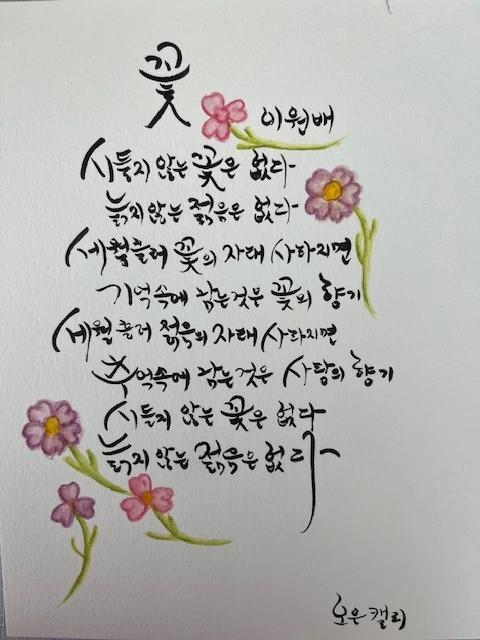 꽃
이원배
시들지 않는 꽃은 없다
늙지 않는 젊음은 없다
세월흘러 꽃의 자태 사라지면
기억속에 남는것은 꽃의 향기
세월흘러 젊음의 자태 사라지면
추억속에 남는것은 사람의 향기
시들지 않는 꽃은 없다
늙지 않는 젊음은 없다
호은캘리